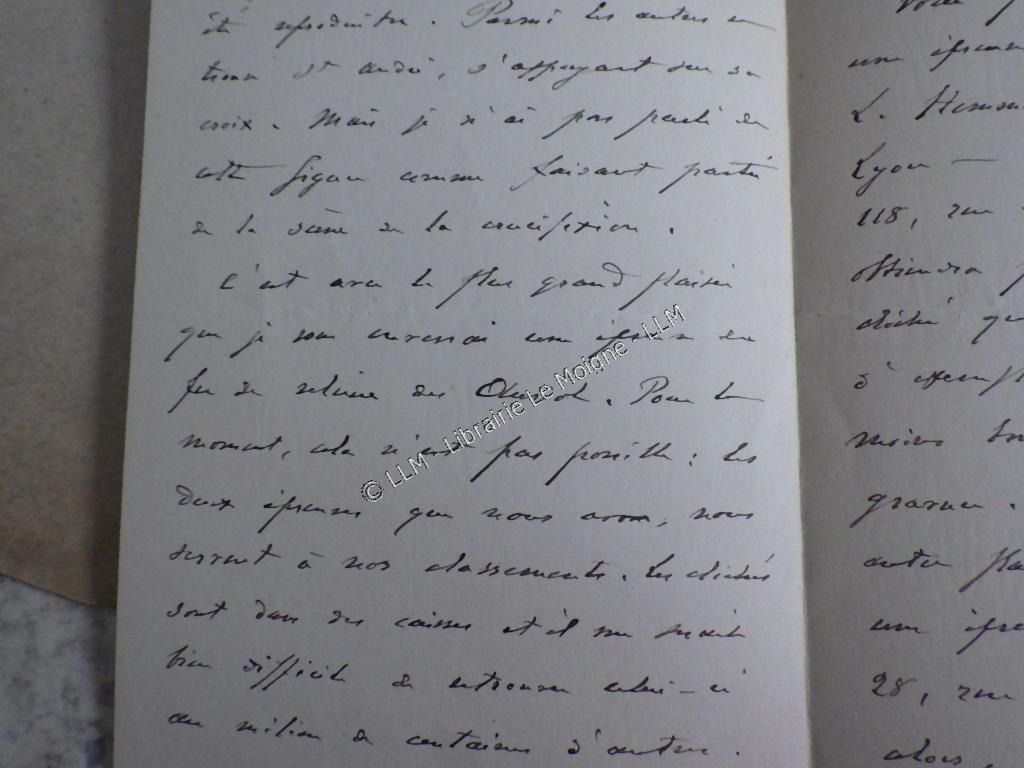 été reproduite. Parmi les autres on
trouve St André, s'appuyant sur sa
croix. Mais je n'ai pas parlé de
cette figure comme faisant partie
de la scène de la crucifixion.
C'est avec le plus grand plaisir
que je vous enverrai une épreuve du
fer de reliure des Chabot. Pour le
moment, cela n'est pas possible : les
deux épreuves que nous avons, nous
servent à nos classements. Les clichés
sont dans des caisses et il me serait
bien difficile de retrouver celui-ci
au milieu de centaines d'autres.
une épreuve
L. Homme
Lyon —
118, rue
obtiendra
cliché qu
d'exempl
moins bon
gravure.
autre
une épre
28, rue
alors,
© LLM - Librairie Le Moigne - LLM